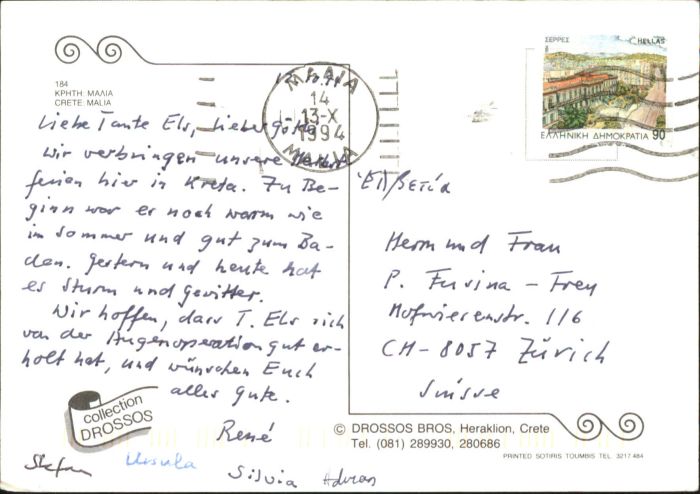 184
ΚΡΗΤΗ: ΜΑΛΙΑ
CRETE: MALIA
Liebe Tante Els, lieber Götti
Wir verbringen unsere Herbst
ferien hier in Kreta. Zu Be-
ginn war er noch warm wie
im Sommer und gut zum Ba-
den. Gestern und heute hat
es Sturm und Gewitter.
Wir hoffen, dass T. Els sich
von der Augenoperation gut er-
holt hat, und wünschen Euch
alles Gute.
René
Stefan Ursula Silvia Adrian
collection
DROSSOS
ΜΑΛΙΑ
14
13-X
1994
ΜΑΛΙΑ
ΣΕΡΡΕΣ HELLAS
ΕΛΛΗΝΙΚΗ ΔΗΜΟΚΡΑΤΙΑ 90
Herrn und Frau
P. Fusina - Frey
Hofwiesenstr. 116
CH-8057 Zürich
Suisse
© DROSSOS BROS, Heraklion, Crete
Tel. (081) 289930, 280686
PRINTED SOTIRIS TOUMBIS TEL. 3217 484